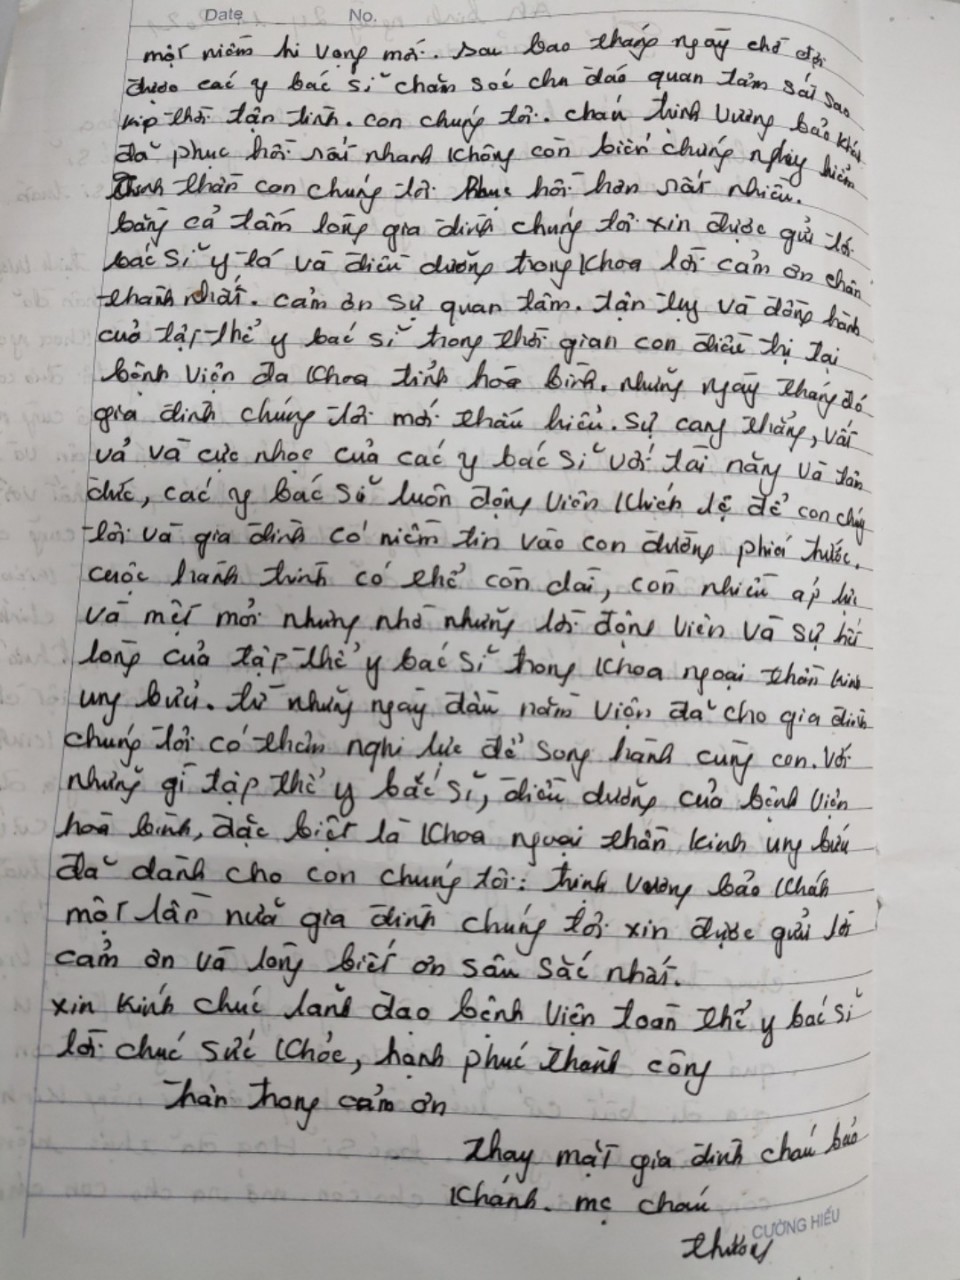 Date No.
một niềm hi vọng mới. sau bao tháng ngày chờ đợi
được các y bác sĩ chăm sóc chu đáo quan tâm sát sao
kịp thời tận tình. con chúng tôi. cháu trịnh Vương bảo khánh
đã phục hồi rất nhanh không còn biến chứng nguy hiểm
tinh thần con chúng tôi phục hồi hơn rất nhiều.
bằng cả tấm lòng gia đình chúng tôi xin được gửi tới
bác sĩ y tá và điều dưỡng trong khoa lời cảm ơn chân
thành nhất. cảm ơn sự quan tâm. tận tụy và đồng hành
của tập thể y bác sĩ trong thời gian con điều trị tại
bệnh viện đa khoa tỉnh hoà bình. những ngày tháng đó
gia đình chúng tôi mới thấu hiểu. sự căng thẳng, vất
vả và cực nhọc của các y bác sĩ với tài năng và tâm
đức, các y bác sĩ luôn động viên khích lệ để con chúng
tôi và gia đình có niềm tin vào con đường phía trước.
cuộc hành trình có thể còn dài, còn nhiều áp lực
và mệt mỏi nhưng nhờ những lời động viên và sự hài
lòng của tập thể y bác sĩ trong khoa ngoại thần kinh
ung bứu. từ những ngày đầu nằm viện đã cho gia đình
chúng tôi có thêm nghị lực để song hành cùng con. với
những gì tập thể y bác sĩ, điều dưỡng của bệnh viện
hoà bình, đặc biệt là khoa ngoại thần kinh ung bứu
đã dành cho con chúng tôi: trịnh vương bảo khánh
một lần nữa gia đình chúng tôi xin được gửi lời
cảm ơn và lòng biết ơn sâu sắc nhất.
xin kính chúc lãnh đạo bệnh viện toàn thể y bác sĩ
lời chúc sức khỏe, hạnh phúc thành công
thân trọng cảm ơn
thay mặt gia đình cháu bảo
khánh. mẹ cháu
CƯỜNG HIẾU